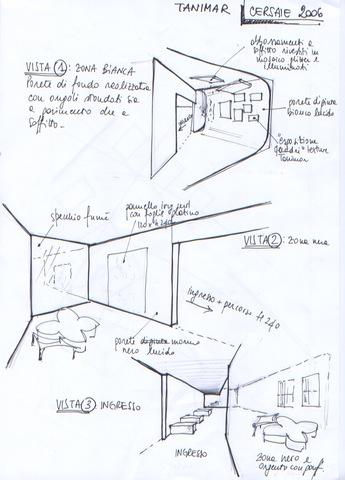 TANIMAR CERSAIE 2006
VISTA 1: ZONA BIANCA
Parete di fondo realizzata
con angoli stondati sia
a pavimento che a
soffitto.
abbassamenti a
soffitto rivestiti in
mosaico
illuminati
parete dipinta
bianco lucido
"esposizione
quadri" texture
Tanimar
specchio fumé
pannello
con foglie platino
120x240
VISTA 2: ZONA nera
Ingresso + percorso H 240
parete dipinta
nero lucido
VISTA 3 INGRESSO
INGRESSO
Zona nero e
argento con